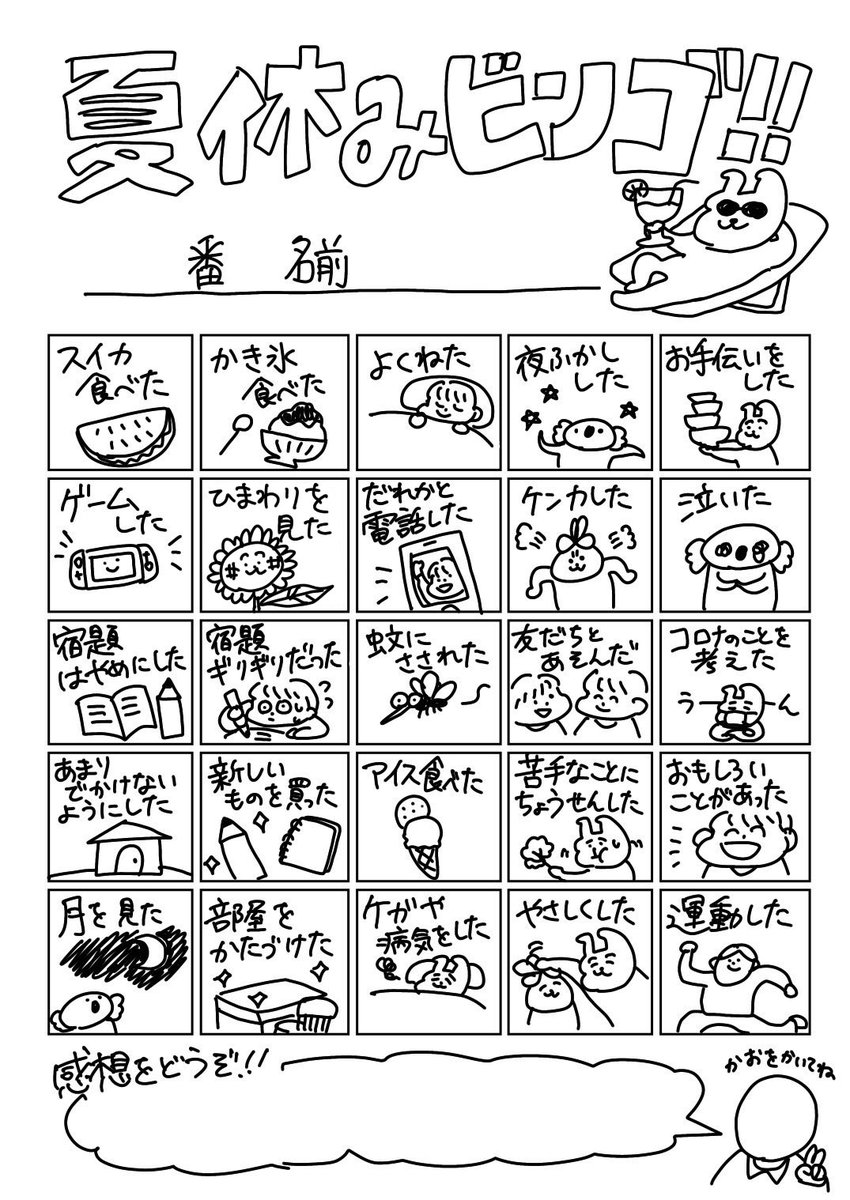 夏休みビンゴ!!
番 名前
スイカ
食べた
かき氷
食べた
よくねた
夜ふかし
した
お手伝いを
した
ゲーム
した
ひまわりを
見た
だれかと
電話した
ケンカした
泣いた
宿題
はやめにした
宿題
ギリギリだった
蚊に
さされた
友だちと
あそんだ
コロナのことを
考えた
うーーん
あまり
でかけない
ようにした
新しい
ものを買った
アイス食べた
苦手なことに
ちょうせんした
おもしろい
ことがあった
月を見た
部屋を
かたづけた
ケガや
病気をした
やさしくした
運動した
感想をどうぞ!!
かおをかいてね